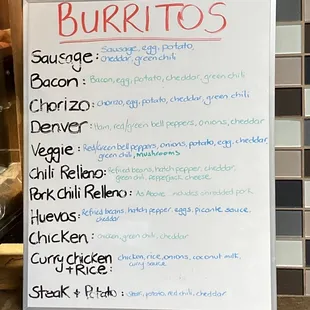 BURRITOS
Sausage: Sausage, egg, potato,
cheddar, green chili
Bacon: Bacon, egg, potato, cheddar, green chili
Chorizo: Chorizo, egg, potato, cheddar, green chili
Denver: Ham, red/green bell peppers, onions, cheddar
Veggie: Red/Green bell peppers, onions, potato, egg, cheddar,
green chili, mushrooms
Chili Relleno: Refried beans, hatch pepper, cheddar,
green chili, pepperjack cheese
Pork Chili Relleno: As Above. includes shredded pork
Huevos: Refried beans, hatch pepper, eggs, picante sauce,
cheddar
Chicken: Chicken, green chili, cheddar
Curry chicken
+ Rice: chicken, rice, onions, coconut milk,
curry sauce
Steak + Potato: steak, potato, red chili, cheddar